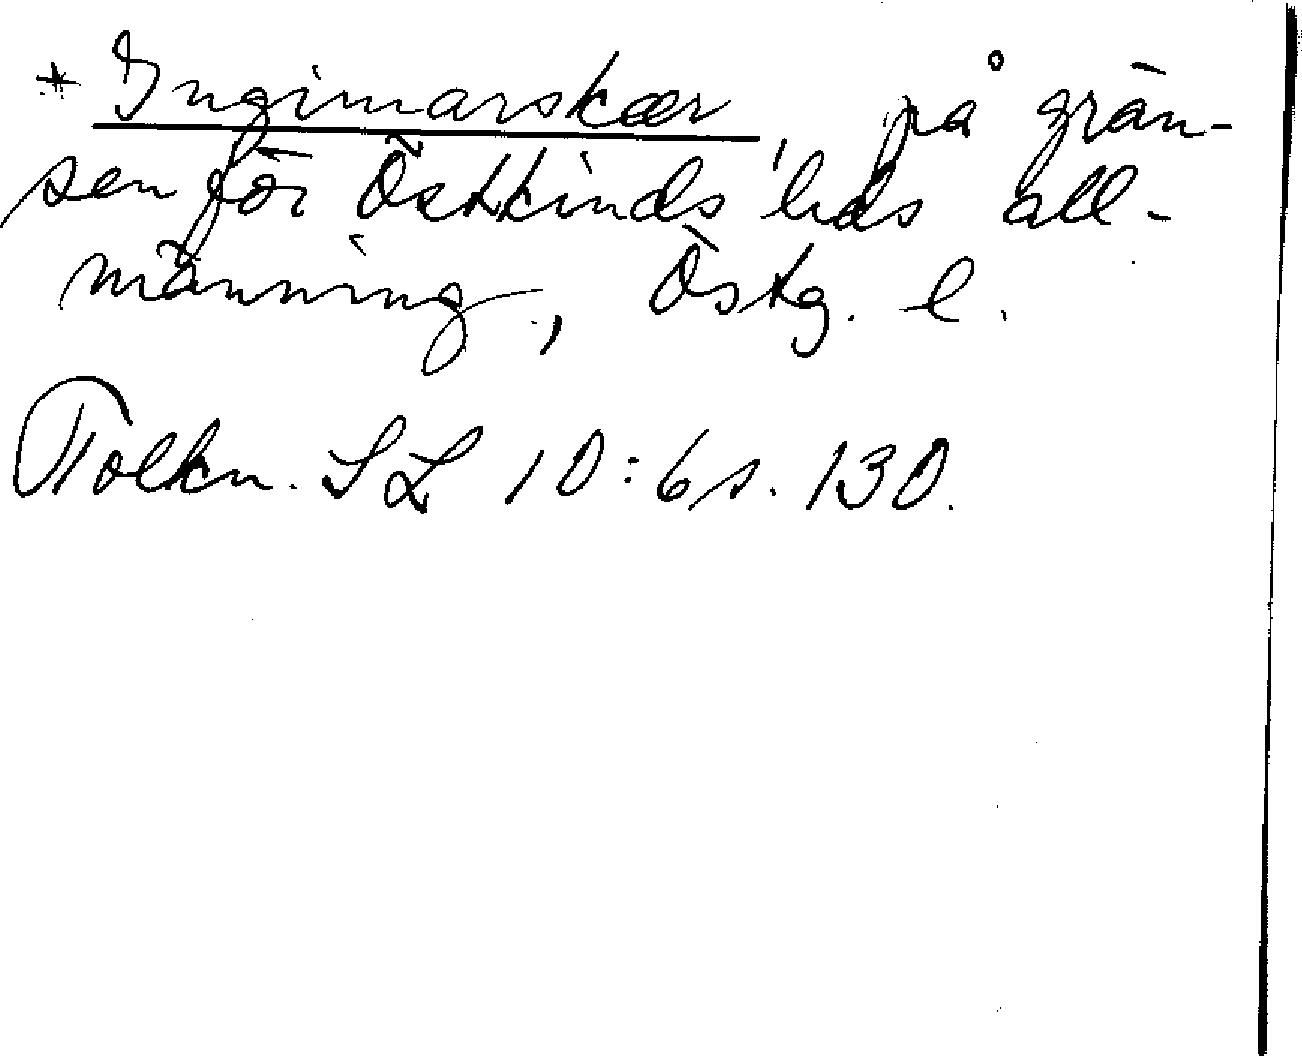 * Ingimarskær, på grän-
sen för Östkinds hds all-
männing, Östg. l.
Tolkn. SL 10:6 s. 130.